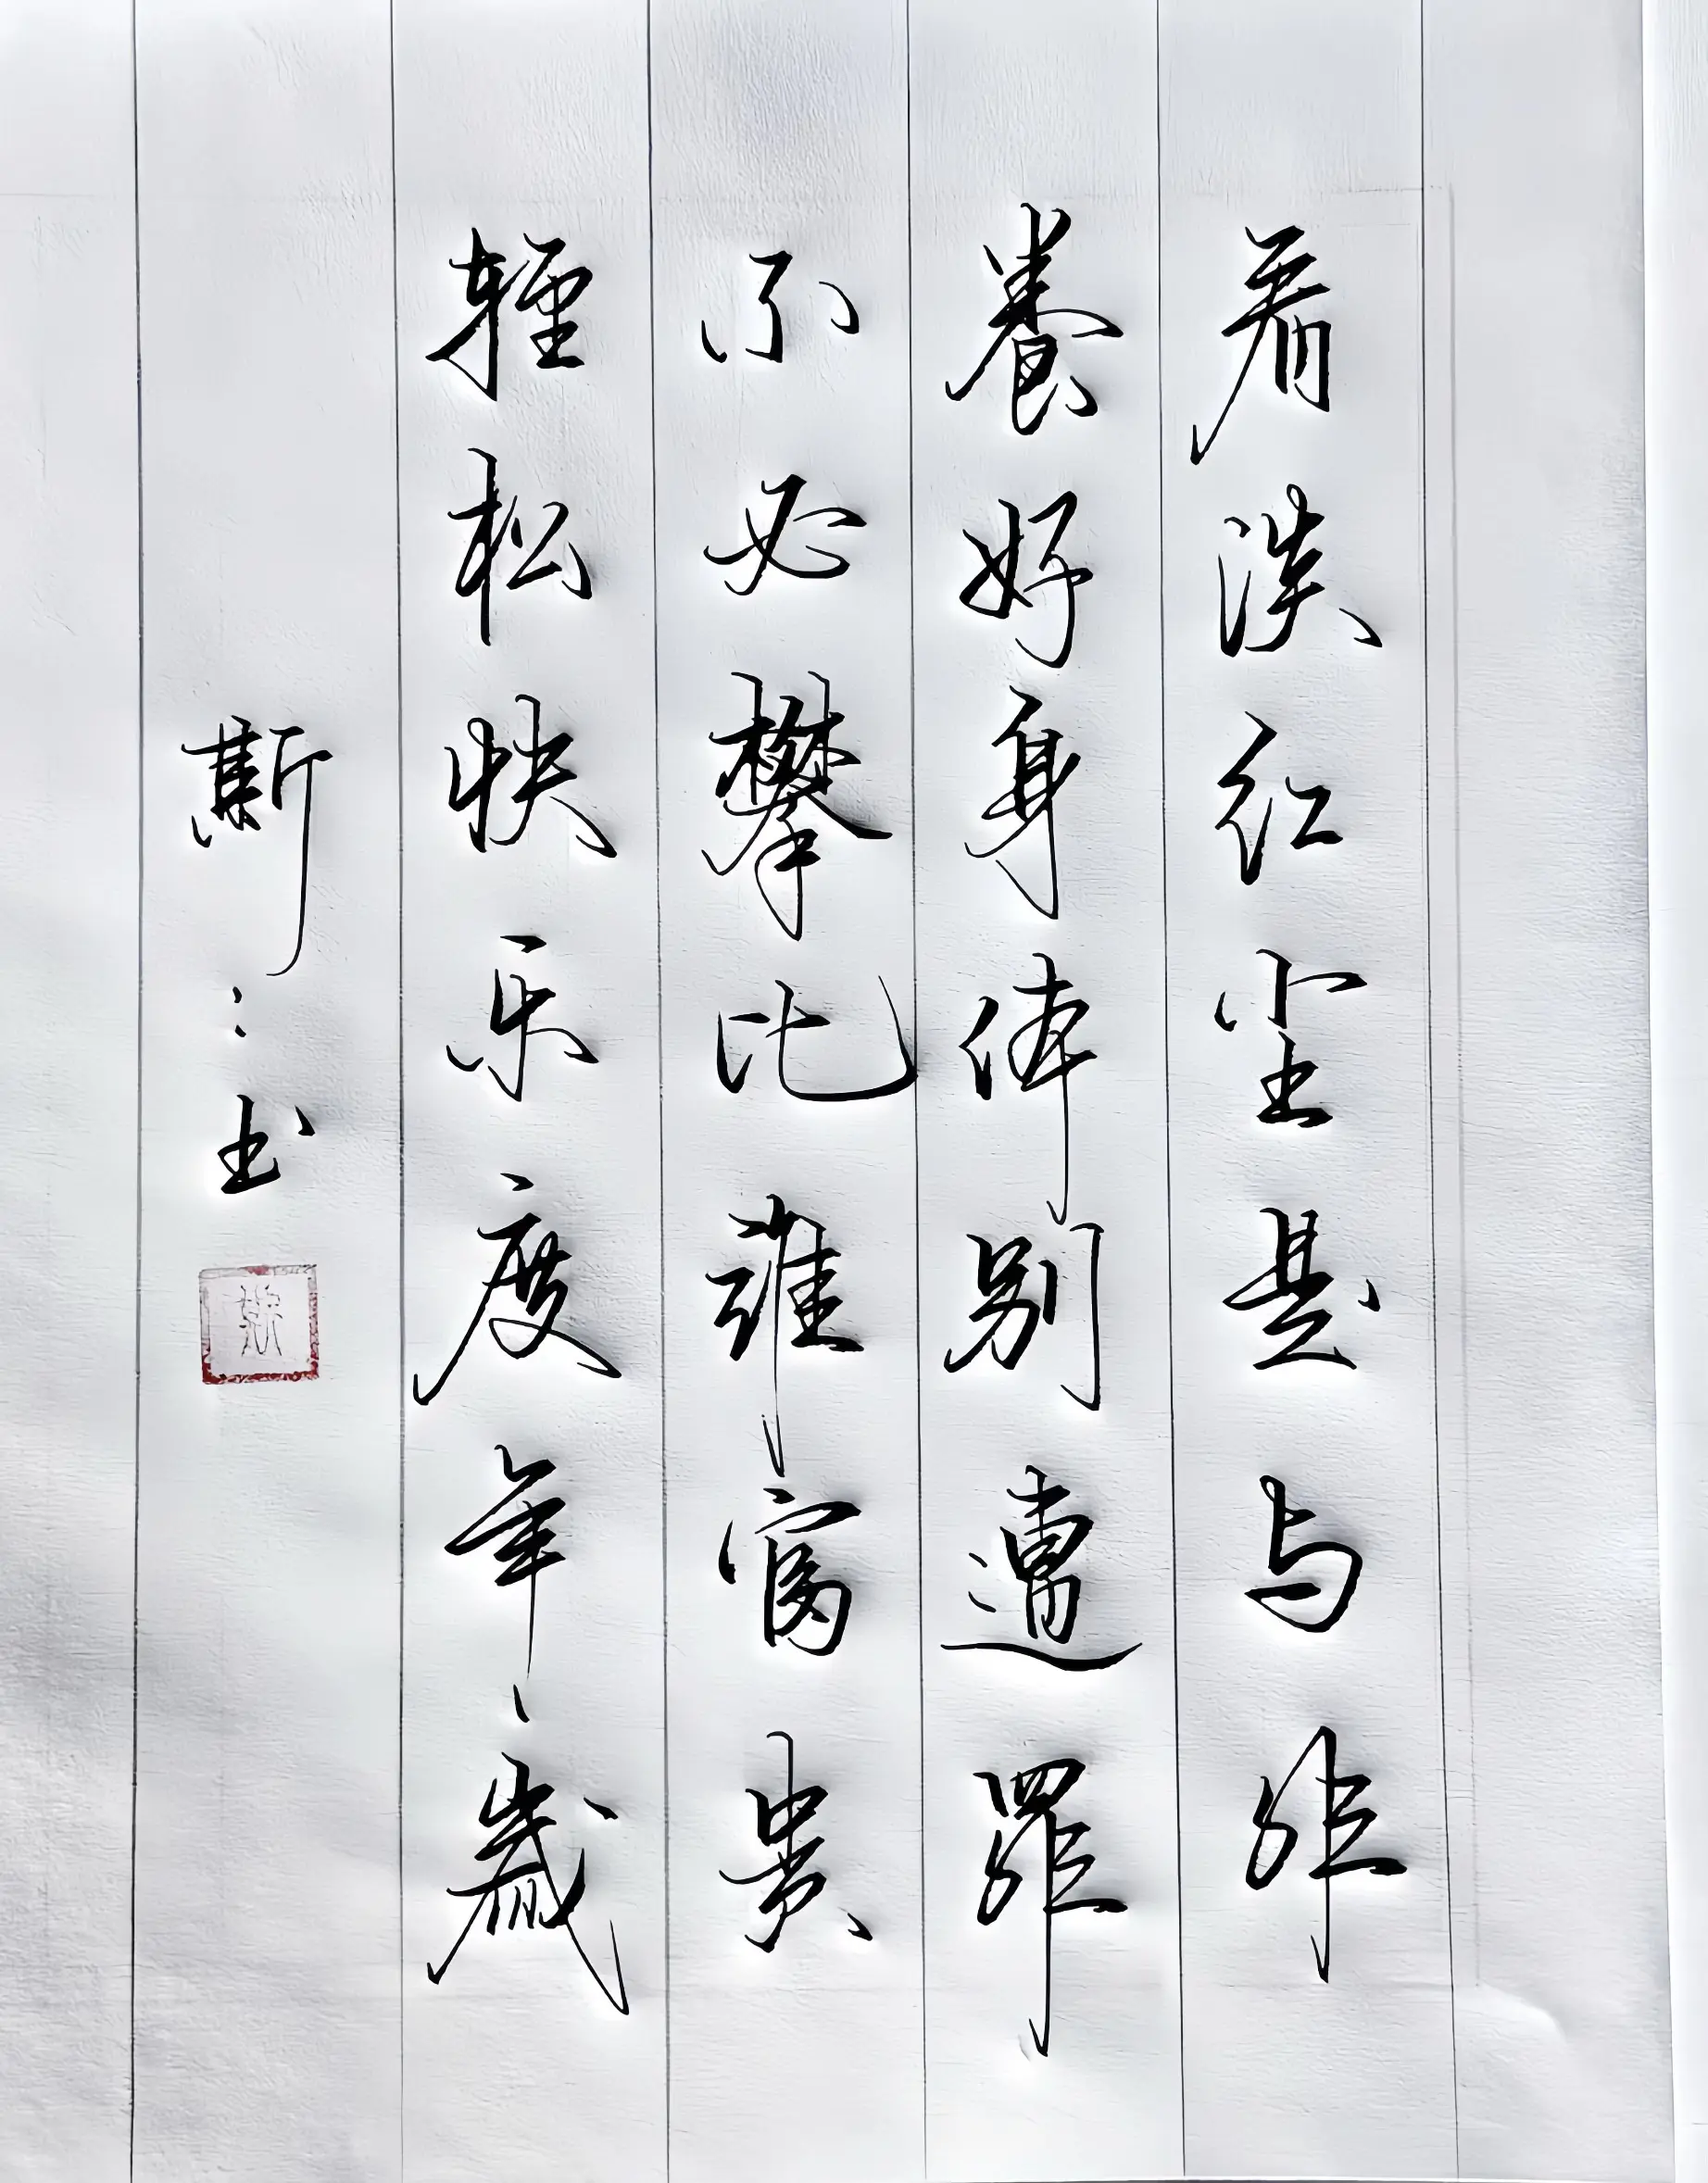 看淡红尘是与非
養好身体别遭罪
不必攀比谁富贵
轻松快乐度年歲
斯：书